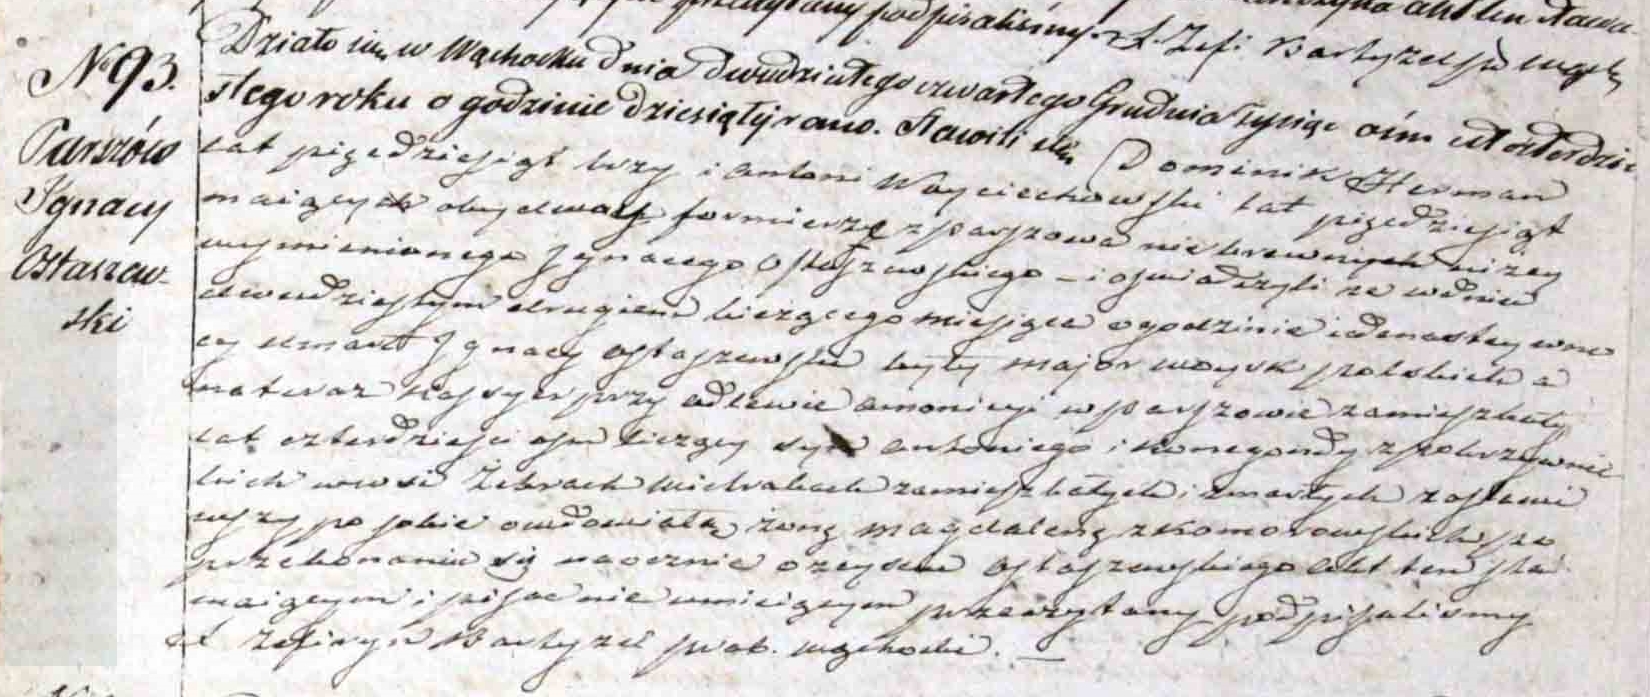 przeczytany podpisaliśmy. X. Zefi: Bartyzel
No 93.
Parszów
Ignacy
Ostaszew-
ski
Działo się w Wąchocku dnia dwudziestego czwartego Grudnia tysiąc ośm set czterdzie-
stego roku o godzinie dziesiątyj rano. Stawili się Dominik Herman
lat pięędziesiąt trzy i Antoni Woyciechowski lat pięędziesiąt
maiący obydway formierze z Parszowa niekrewnych niżey
wymienionego Ignacego Ostaszewskiego – i oświadczyli że w dniu
dwudziestym drugiem bieżącego miesiąca o godzinie iedenastey w no
cy umarł Ignacy Ostaszewski były major woysk polskich a
na teraz kassyer przy odlewie amonicyi w Parszowie zamieszkały
lat czterdzieści ośm liczący syn Antoniego i Konegondy z
kich we wsi Żebrach zamieszkałych i zmarłych zostawi
wszy po sobie owdowiałą żonę Magdalenę z Komorowskich po
przekonaniu się naocznie o zeyściu Ostaszewskiego Akt ten sta
waiącym i pisać nie umieiącym przeczytany podpisaliśmy
X Zefiryn Bartyzel prob. Wąchocki.